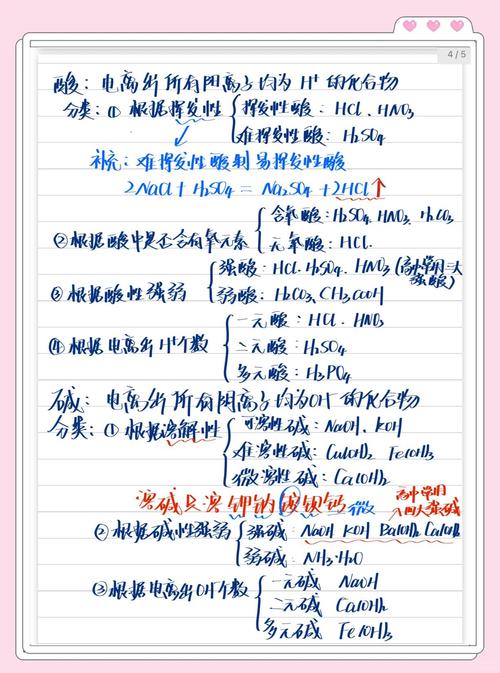 4/5
酸：电离所所有阳离子均为 H⁺ 的化合物
分类：① 根据挥发性 { 挥发性酸：HCl、HNO₃
难挥发性酸：H₂SO₄
补充：难挥发性酸制易挥发性酸
2NaCl + H₂SO₄ = Na₂SO₄ + 2HCl↑
② 根据酸中是否含有氧元素 { 含氧酸：H₂SO₄、HNO₃、H₂CO₃
无氧酸：HCl.
③ 根据酸性强弱 { 强酸：HCl、H₂SO₄、HNO₃ (高中常用三大强酸)
弱酸：H₂CO₃、CH₃COOH
④ 根据电离所H⁺个数 { 一元酸：HCl、HNO₃
二元酸：H₂SO₄
多元酸：H₃PO₄
碱：电离所所有阴离子均为OH⁻的化合物
分类：① 根据溶解性 { 可溶性碱：NaOH、KOH
难溶性碱：Cu(OH)₂ Fe(OH)₃
微溶性碱：Ca(OH)₂
溶碱只溶钾钠铵钡钙微
高中常用四大强碱
② 根据碱性强弱 { 强碱：NaOH KOH Ba(OH)₂ Ca(OH)₂
弱碱：NH₃·H₂O
③ 根据电离所OH⁻个数 { 一元碱 NaOH
二元碱 Ca(OH)₂
多元碱 Fe(OH)₃